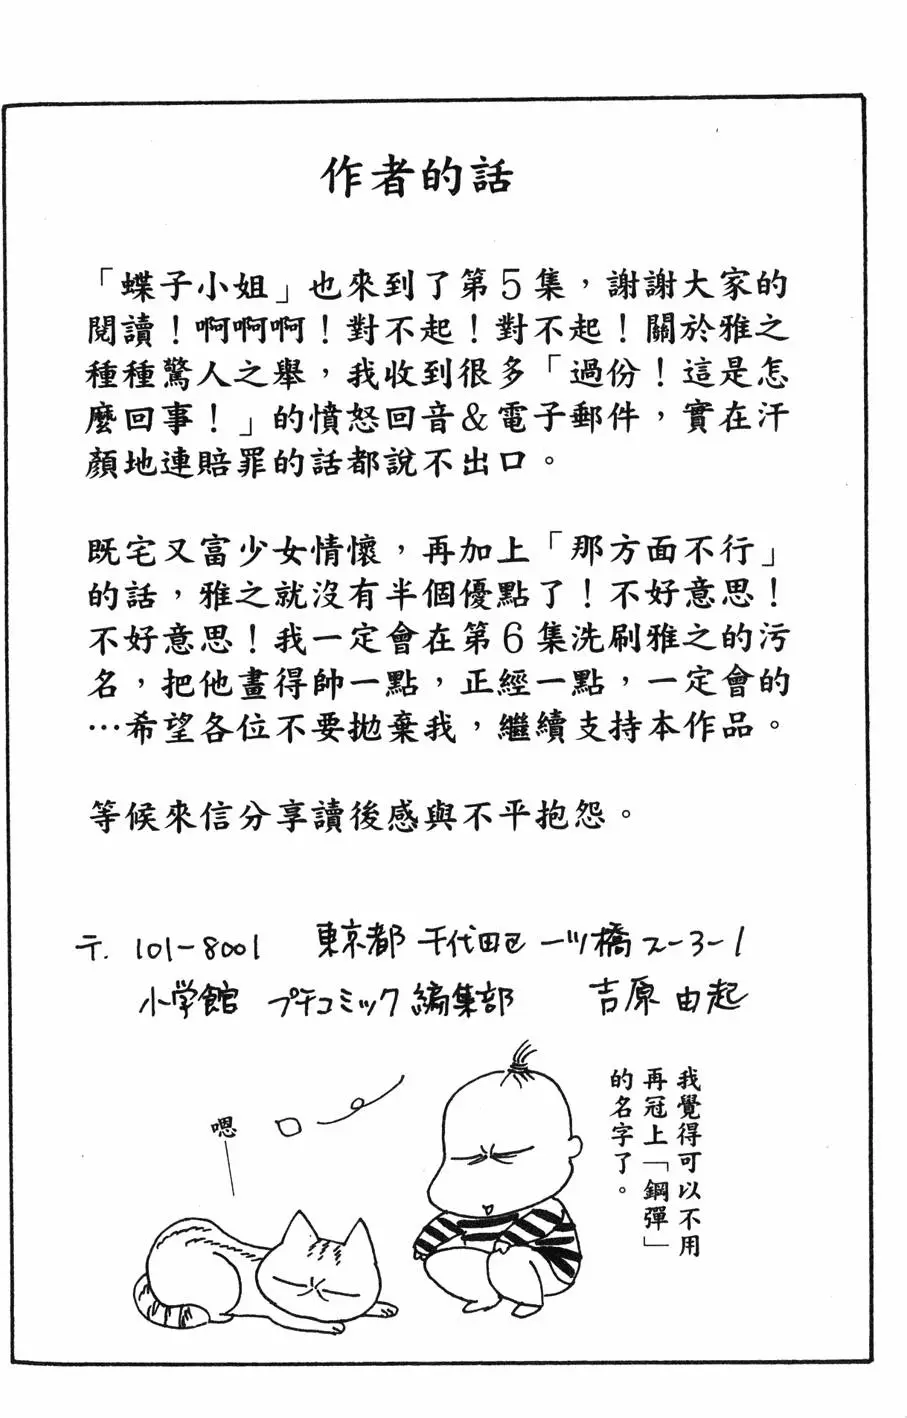 作者的話
「蝶子小姐」也來到了第5集，謝謝大家的
閱讀！啊啊啊！對不起！對不起！關於雅之
種種驚人之舉，我收到很多「過份！這是怎
麼回事！」的憤怒回音&電子郵件，實在汗
顏地連賠罪的話都說不出口。
既宅又富少女情懷，再加上「那方面不行」
的話，雅之就沒有半個優點了！不好意思！
不好意思！我一定會在第6集洗刷雅之的污
名，把他畫得帥一點，正經一點，一定會的
…希望各位不要拋棄我，繼續支持本作品。
等候來信分享讀後感與不平抱怨。
〒. 101-8001 東京都 千代田区 一ツ橋 2-3-1
小学館 プチコミック 編集部 吉原 由起
我覺得可以不用
再冠上「鋼彈」
的名字了。
嗯